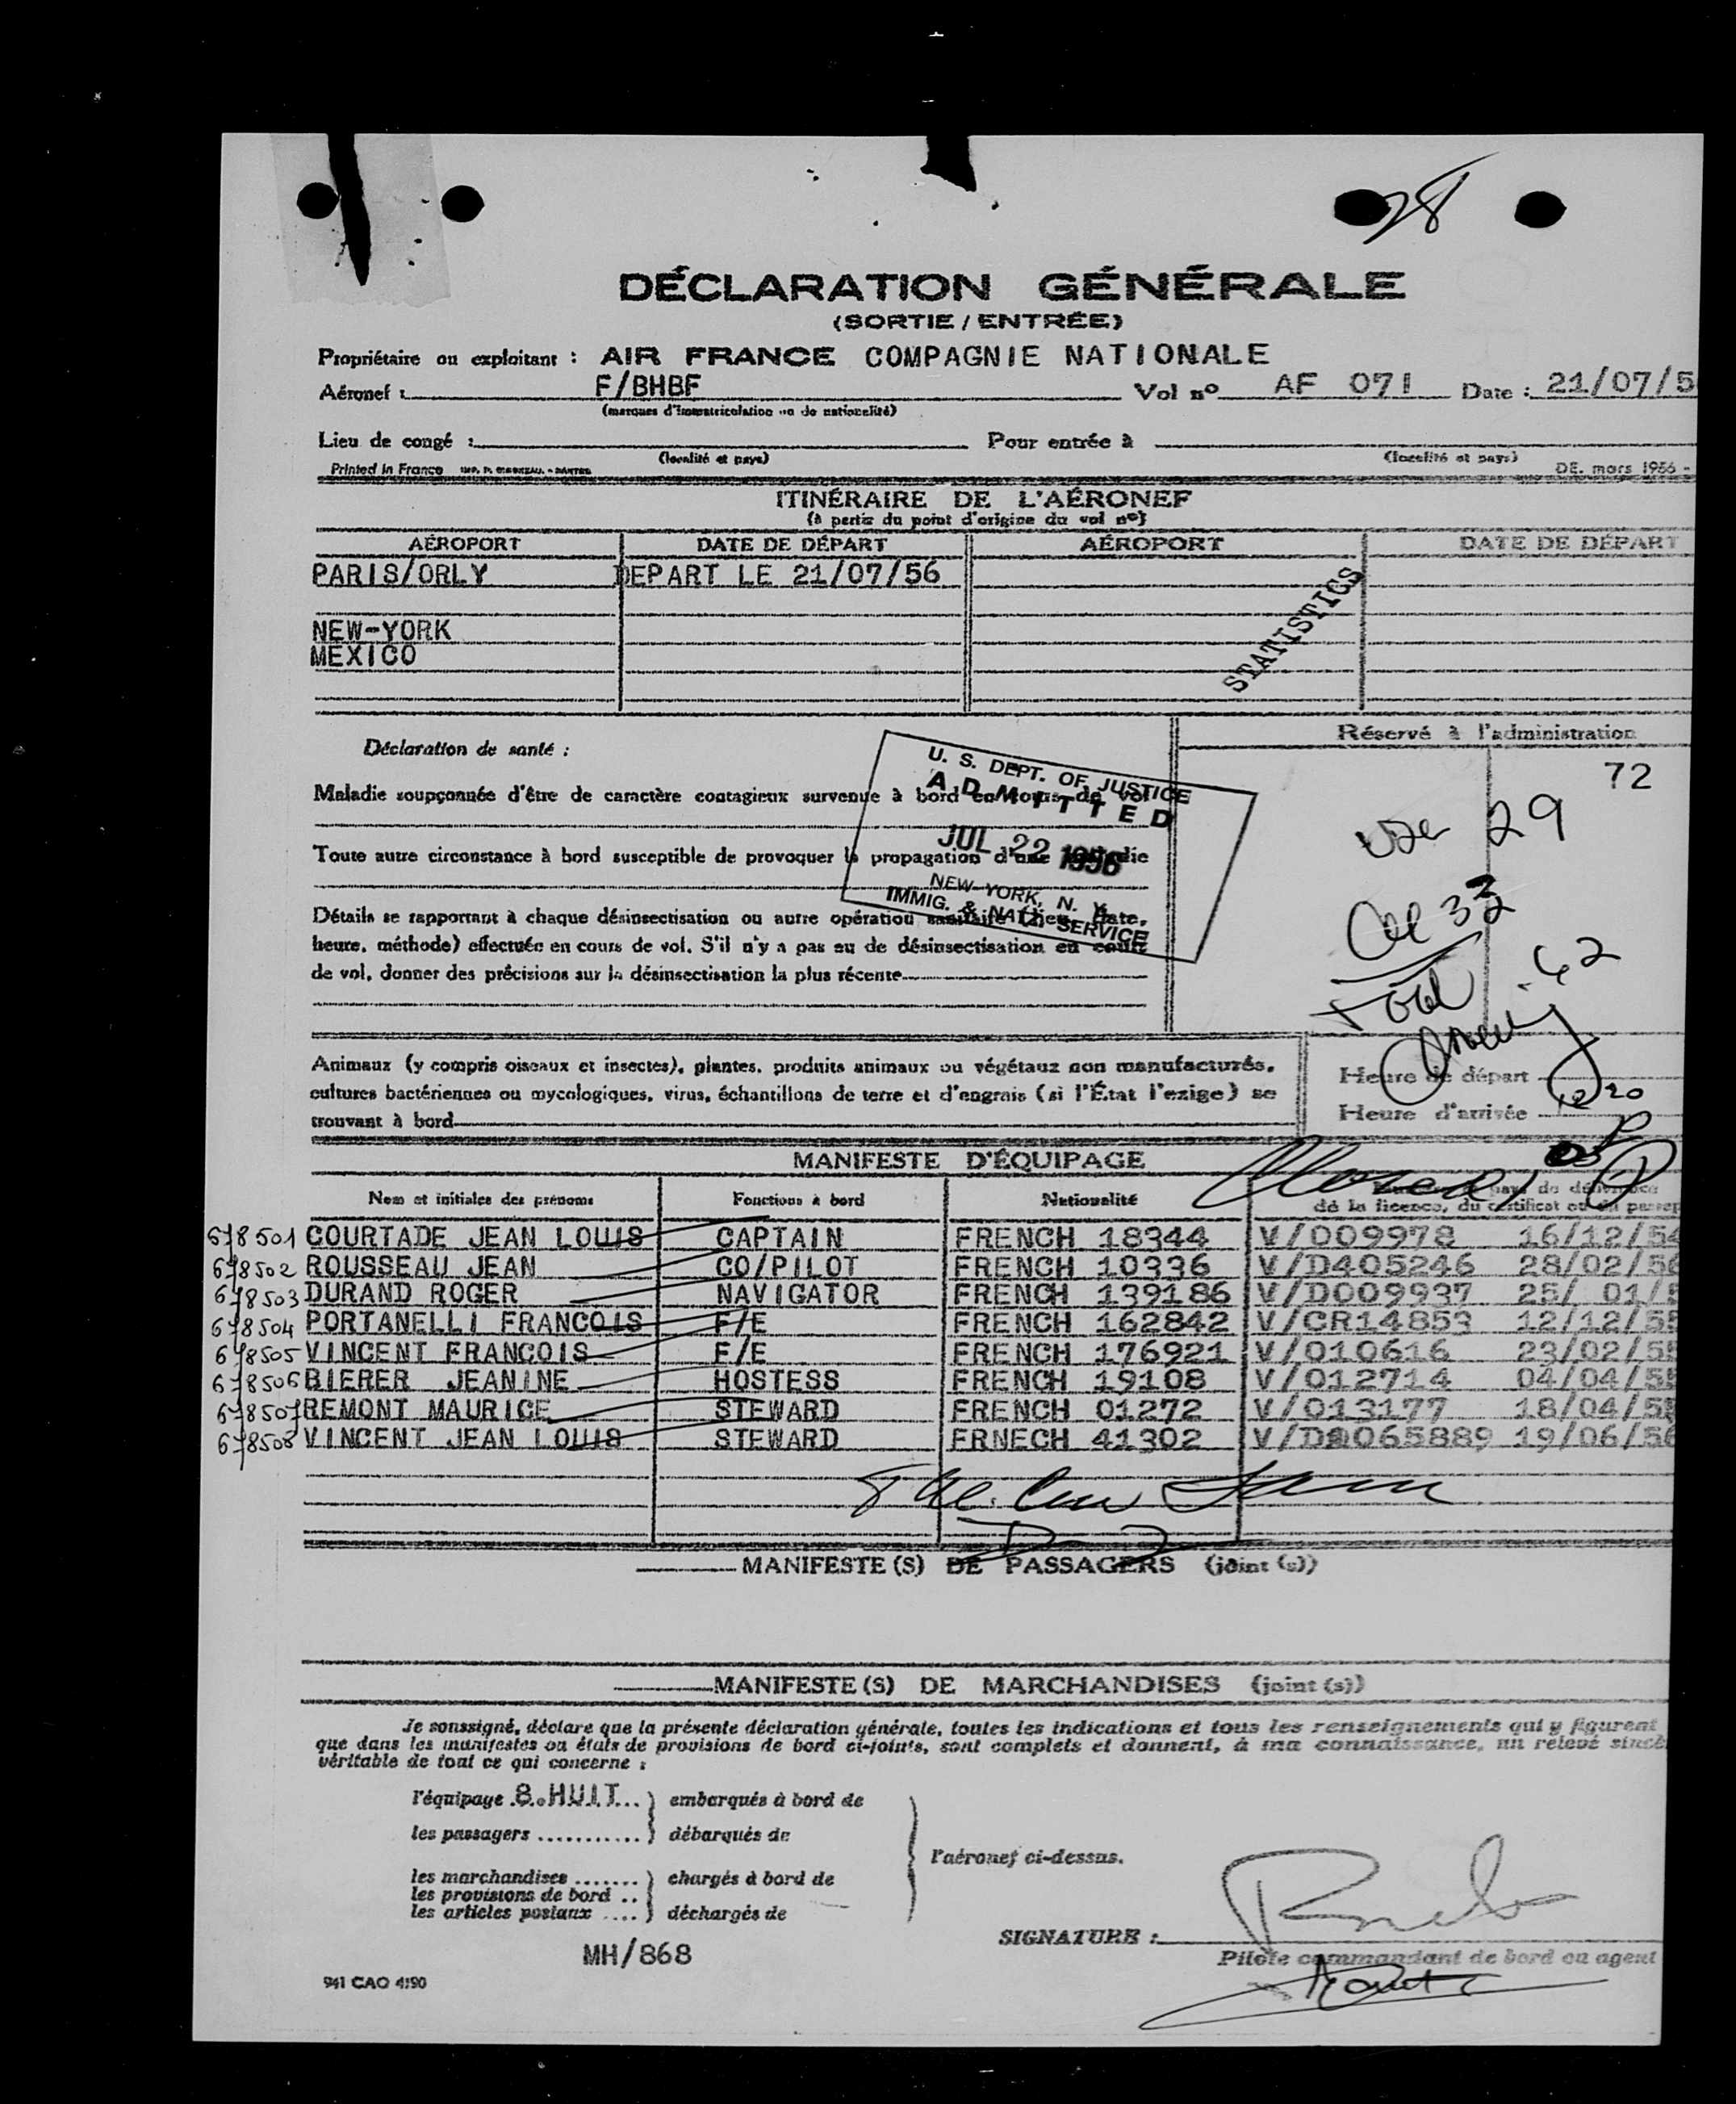 28
DÉCLARATION GÉNÉRALE
(SORTIE / ENTRÉE)
Propriétaire ou exploitant : AIR FRANCE COMPAGNIE NATIONALE
Aéronef : F/BHBF Vol nº AF 071 Date : 21/07/5
(marques d'immatriculation ou de nationalité)
Lieu de congé : Pour entrée à
(localité et pays) (localité et pays)
Printed in France DE. mars 1956 -
ITINÉRAIRE DE L'AÉRONEF
(à partir du point d'origine du vol nº)
AÉROPORT DATE DE DÉPART AÉROPORT DATE DE DÉPART
PARIS/ORLY DEPART LE 21/07/56
STATISTICS
NEW-YORK
MEXICO
Réservé à l'administration
Déclaration de santé :
72
U. S. DEPT. OF JUSTICE
ADMITTED
JUL 22 1956
NEW YORK, N. Y.
IMMIG. & NATZ. SERVICE
Maladie soupçonnée d'être de caractère contagieux survenue à bord en cours de vol
29
Toute autre circonstance à bord susceptible de provoquer la propagation d'une maladie
33
Détails se rapportant à chaque désinsectisation ou autre opération sanitaire (lieu, date,
heure, méthode) effectuée en cours de vol. S'il n'y a pas eu de désinsectisation en cours
de vol, donner des précisions sur la désinsectisation la plus récente
Total 62
Animaux (y compris oiseaux et insectes), plantes, produits animaux ou végétaux non manufacturés,
cultures bactériennes ou mycologiques, virus, échantillons de terre et d'engrais (si l'État l'exige) se
trouvant à bord
Heure de départ
Heure d'arrivée
MANIFESTE D'ÉQUIPAGE
Nom et initiales des prénoms Fonctions à bord Nationalité pays de délivrance
de la licence, du certificat ou du passep
678501 COURTADE JEAN LOUIS CAPTAIN FRENCH 18344 V/009978 16/12/54
678502 ROUSSEAU JEAN CO/PILOT FRENCH 10336 V/D405246 28/02/56
678503 DURAND ROGER NAVIGATOR FRENCH 139186 V/D009937 25/ 01/5
678504 PORTANELLI FRANCOIS F/E FRENCH 162842 V/CR14853 12/12/55
678505 VINCENT FRANCOIS F/E FRENCH 176921 V/010616 23/02/55
678506 BIERER JEANINE HOSTESS FRENCH 19108 V/012714 04/04/55
678507 REMONT MAURICE STEWARD FRENCH 01272 V/013177 18/04/55
678508 VINCENT JEAN LOUIS STEWARD FRNECH 41302 V/D0065889 19/06/56
MANIFESTE (S) DE PASSAGERS (joint (s))
MANIFESTE (S) DE MARCHANDISES (joint (s))
Je soussigné, déclare que la présente déclaration générale, toutes les indications et tous les renseignements qui y figurent
que dans les manifestes ou états de provisions de bord ci-joints, sont complets et donnent, à ma connaissance, un relevé sincè
véritable de tout ce qui concerne :
l'équipage 8.HUIT... embarqués à bord de
les passagers ........... débarqués de
l'aéronef ci-dessus.
les marchandises ....... chargés à bord de
les provisions de bord ..
les articles postaux .... déchargés de
SIGNATURE :
MH/868
Pilote commandant de bord ou agent
941 CAO 4190